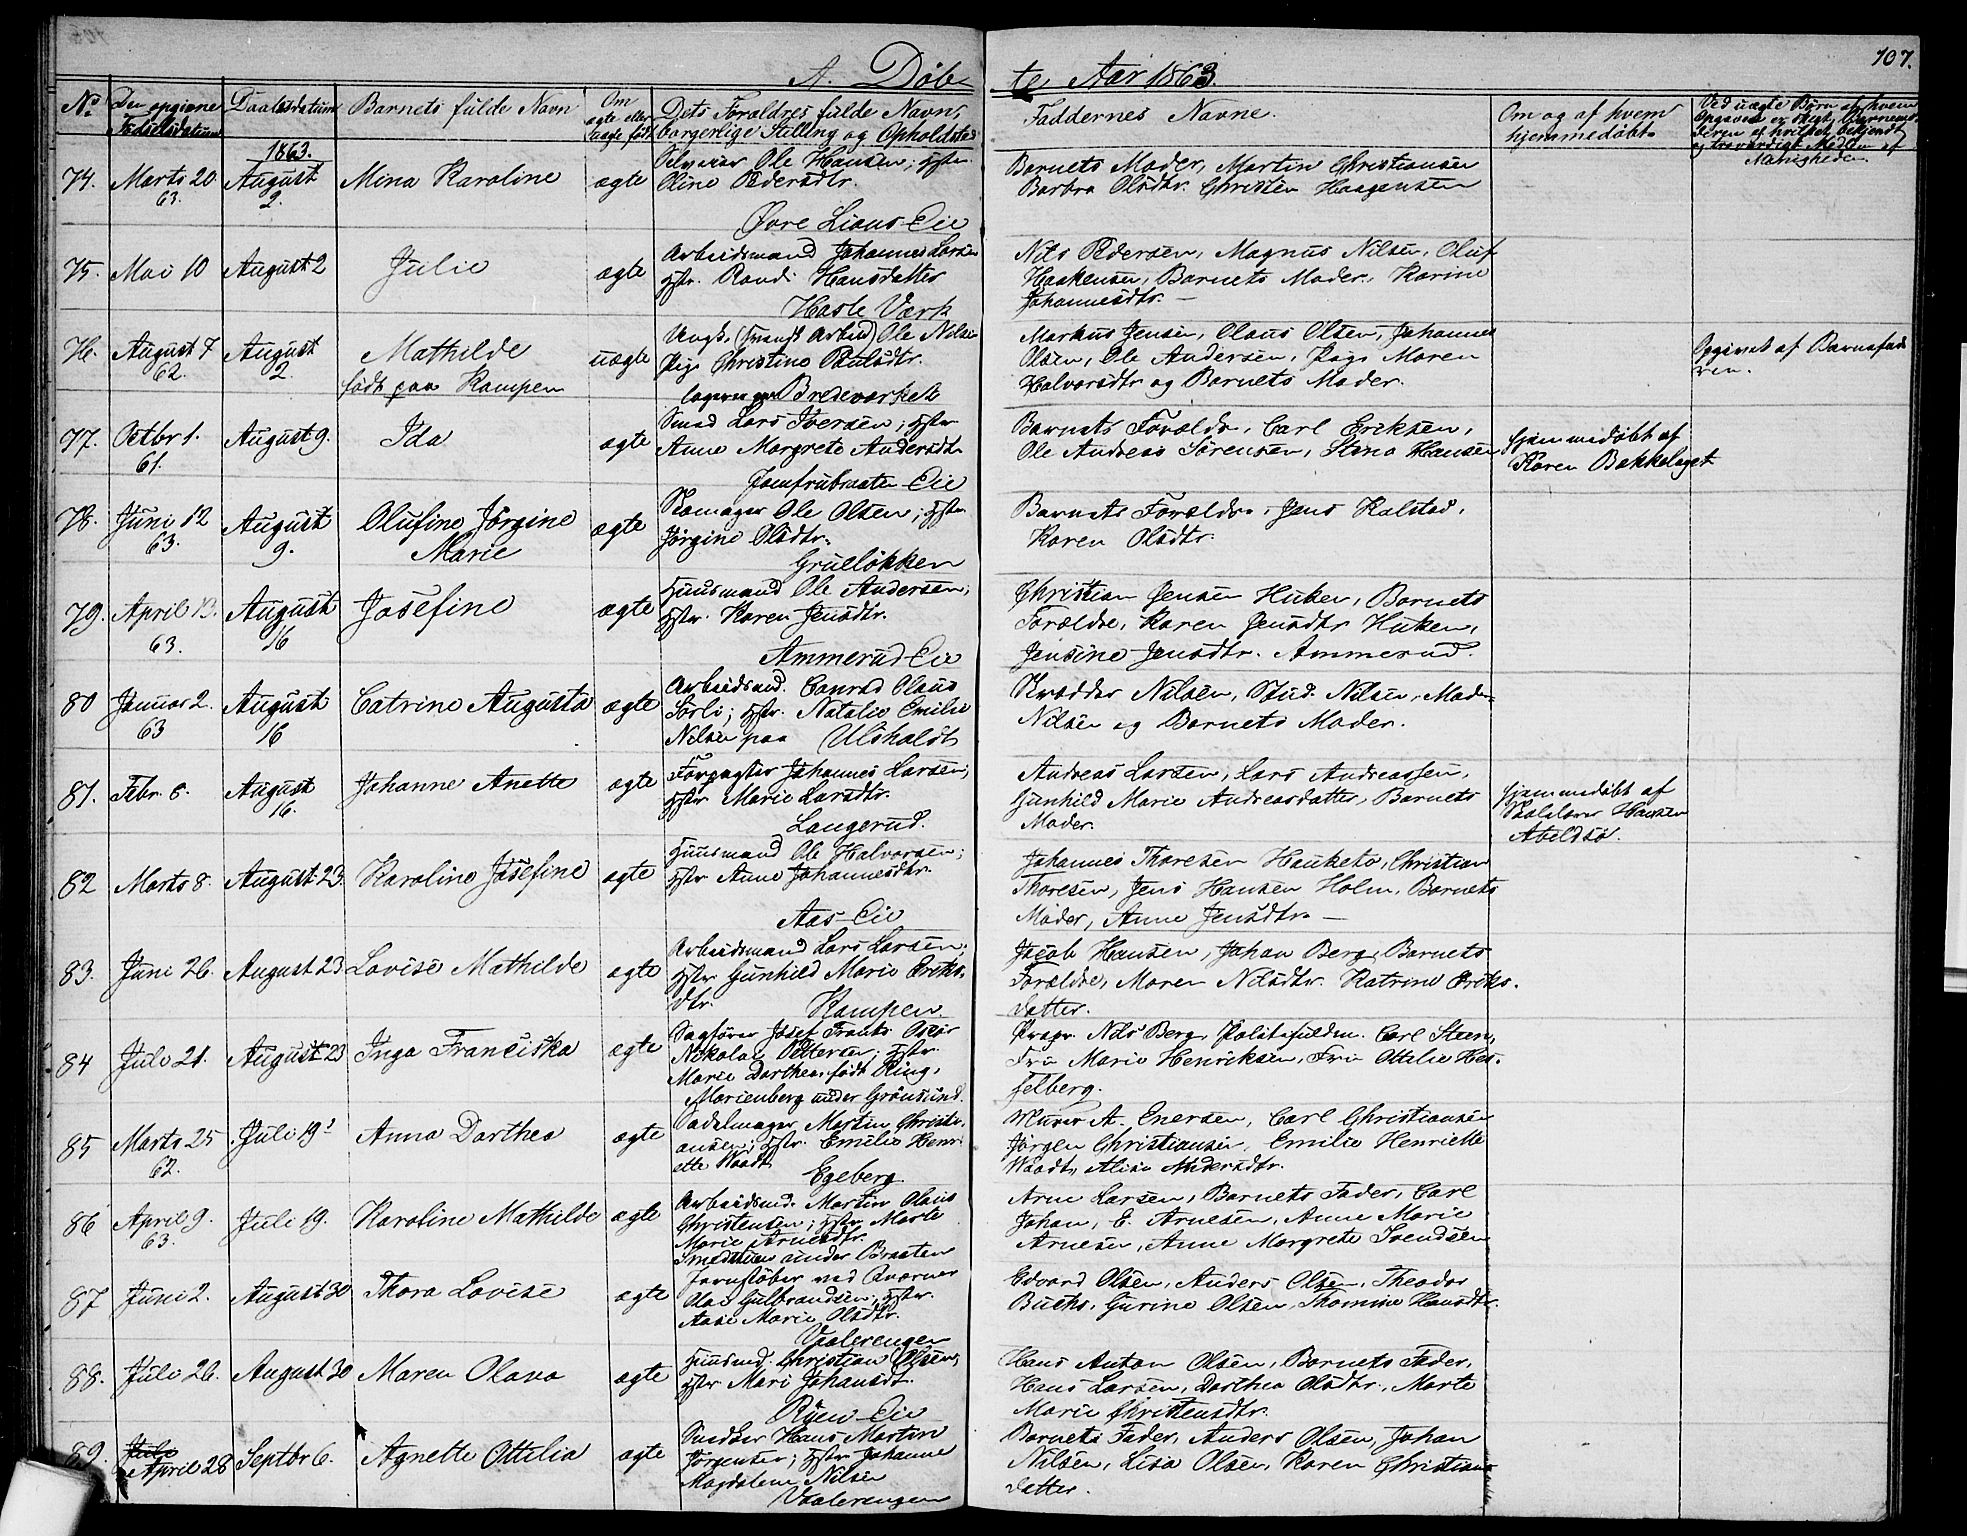 107.
A. Døb-
te, Aar 1863.
No
Den opgivne
Fødselsdatum
Daabsdatum
Barnets fulde Navn
Om
ægte eller
uægte født
Dets Forældres fulde Navn,
borgerlige Stilling og Opholdsted
Faddernes Navne.
Om og af hvem
hjemmedøbt.
Ved uægte Børn af hvem
1863.
74.
Marts 20
63.
August
2.
Mina Karoline
ægte
Ole Hansen; Hstr.
Oline Pedersdtr.
Øvre Lians-Eie
Barnets Moder, Martin Christiansen
Barbra Olsdtr. Christen Haagensen
75.
Mai 10
August 2
Julie
ægte
Arbeidsmand Johannes Larsen
Hstr. Randi Hansdatter
Hasle Værk
Nils Pedersen, Magnus Nilsen, Oluf
Haakensen, Barnets Moder, Karine
Johannesdtr. —
76.
August 7
62.
August
2.
Mathilde
født paa Kampen
uægte
Ungk. Ole Nilsen
Pige Christine Poulsdtr.
Bredeværkett
Markus Jensen, Olaus Olsen, Johannes
Olsen, Ole Andersen, Pige Maren
Halvorsdtr og Barnets Moder.
Opgivet af Barnefad
ren.
77.
Octbr 1.
61.
August 9.
Ida
ægte
Smed Lars Iversen; Hstr.
Anne Margrete Andersdtr
Jomfrubraaten-Eie
Barnets Forældre, Carl Eriksen,
Ole Andreas Sørensen, Stena Hansen
Hjemmedøbt af
Karen Bækkelaget
78.
Juni 12
63.
August
9.
Olufine Jørgine
Marie
ægte
Skomager Ole Olsen; Hstr.
Jørgine Olsdtr.
Grueløkken
Barnets Forældre, Jens Kalstad,
Karen Olsdtr.
79.
April 13.
63.
August
16
Josefine
ægte
Huusmand Ole Andersen;
Hstr. Karen Jensdtr.
Ammerud-Eie
Christian Jensen Huken, Barnets
Forældre, Karen Jensdtr Huken,
Jensine Jensdtr. Ammerud.
80
Januar 2.
63
August
16
Catrine Augusta
ægte
Arbeidsmd. Conrad Olaus
Sørli; Hstr. Natalie Emilie
Nilsen paa Ulsholdt
Kræmmer Nilsen, Stud. Nilsen, Mad.
Nilsen og Barnets Moder.
81.
Febr. 8.
August
16.
Johanne Anette
ægte
Forpagter Johannes Larsen;
Hstr Marie Larsdtr.
Langerud.
Andreas Larsen, Lars Andreassen,
Gunhild Marie Andreasdatter, Barnets
Moder.
Hjemmedøbt af
Skolelærer Hansen
Abildsø.
82
Marts 8.
August 23.
Karoline Josefine
ægte
Huusmand Ole Halvorsen;
Hstr Anne Johannesdtr.
Aas-Eie
Johannes Thoresen Hauketo, Christian
Thoresen, Jens Hansen Holm, Barnets
Moder, Anne Jensdtr. —
83.
Juni 26.
August 23
Lovise Mathilde
ægte
Arbeidsmand Lars Larsen;
Hstr Gunhild Marie Eriks-
dtr. Kampen.
Jacob Hansen, Johan Berg, Barnets
Forældre, Maren Nilsdtr. Katrine Eriks-
datter.
84
Juli 21.
August 23
Inga Franciska
ægte
Sagfører Josef Frants Oscar
Nikolai Pettersen; Hstr.
Marie Dorthea, født Ring,
Marienberg under Grønsund.
Nils Berg, Politifuldm. Carl Steen,
Fru Marie Henriksen, Fru Ottilie Hes-
selberg.
85
Marts 25
62.
Juli 19
Anna Dorthea
ægte
Sadelmager Martin Christi-
ansen; Hstr. Emilie Henri-
ette Waadt
Egeberg.
Murer A. Enersen, Carl Christiansen
Jørgen Christiansen, Emilie Henriette
Waadt, Alise Andersdtr.
86
April 9.
63.
Juli 19.
Karoline Mathilde
ægte
Arbeidsmd. Martin Olaus
Christensen; Hstr. Marte
Marie Arnesdtr.
under Braaten
Arne Larsen, Barnets Fader, Carl
Johan, E. Arnesen, Anne Marie
Arnesen, Anne Margrete Svendsen
87
Juni 2.
August 30
Thora Lovise
ægte
Jernstøber ved Kværner
Olai Gulbrandsen; Hstr.
Aase Marie Olsdtr.
Vaalerengen
Edvard Olsen, Anders Olsen, Theodor
Buchs, Gurine Olsen, Thomine Hansdtr.
88.
Juli 26.
August 30
Maren Olava
ægte
Huusmd. Christian Olsen;
Hstr Mari Johansdt.
Ryen-Eie
Hans Anton Olsen, Barnets Fader,
Hans Larsen, Dorthea Olsdtr, Marte
Marie Christensdtr.
89.
Juli
April 28
Septbr 6.
Agnette Ottilia
ægte
Snedker Hans Martin
Jørgensen; Hstr Johanne
Magdalene Nilsen
Vaalerengen
Barnets Fader, Anders Olsen, Johan
Nilsen, Lisa Olsen, Karen Christians-
datter.